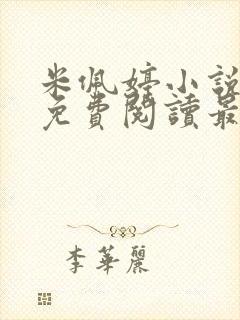 米佩婷小說
免費閱讀最
李華麗